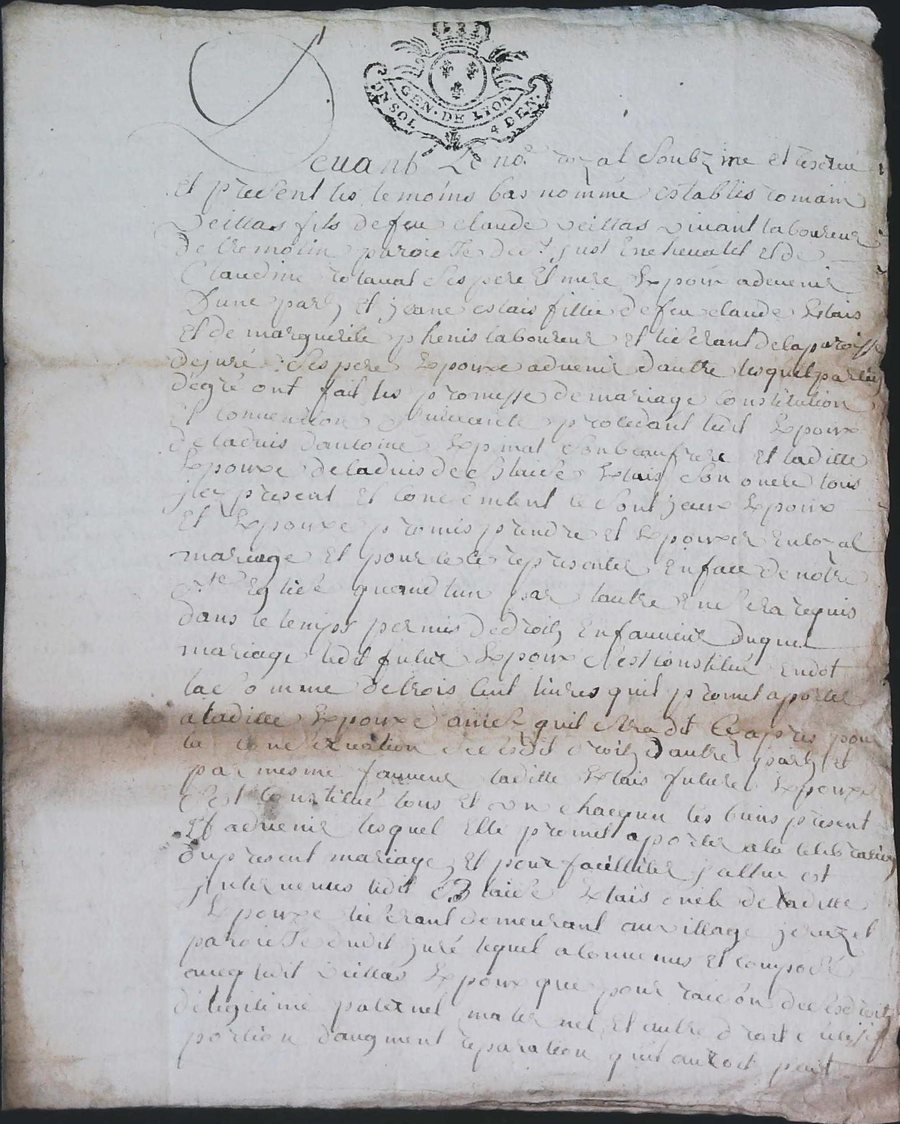 GEN · DE LYON
UN SOL 4 DEN ·
Devant Le no.e royal Soubz.ne et reservé
Et present les temoins bas nommé establis romain
veillas fils de feu claude veillas vivant laboureur
de tremolin paroisse de st just En chevalet et de
Claudine rolaual Ses pere Et mere Expoux advenir
Dune part, et jeane estais fillie de feu claude Extais
Et de marguerite phenis laboureur Et tisserant de la paroisse
de juré Ses pere Expouxe advenir dautre lesquel parties
de gré ont fait les promesse de mariage constitution
Et convention Suivante procedant ledit Expoux
de ladvis dantoine Son beaufrere Et laditte
Expouxe de ladvis de Blaise Extais Son oncle tous
icy present Et concentent Se Sont jceux Expoux
Et Expouxe promis prendre et Expouxer En loyal
mariage Et pour ce Se represanter En face de notre
ste Eglise quand lun par lautre En Sera requis
dans le temps permis de droit, En faveur duquel
mariage ledit futur Expoux c'est constitué En dot
la Somme de trois Cent livres quil promet aporter
a laditte Expouxe ainsy quil Sera dit Cy apres pour
la dautre part, Et
par mesme faveur laditte Extais future Expouxe
C'est Constitué tous et un chacqun Ses biens present
Et advenir lesquel Elle promet aporter a la celebration
du present mariage, Et pour facilliter jcelluy est
jntervenus ledit Blaise Extais oncle de laditte
Expouxe tisserant demeurant au village
paroisse dudit juré lequel a convenus Et composé
avecq ledit veillas Expoux que pour raison des droit
de legitime paternel, maternel, Et autre droit
portion daugment reparation quil auroit peut